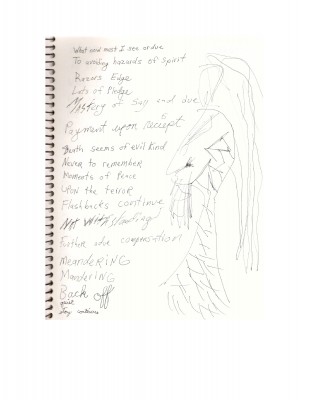 What and most I see or due
To avoiding hazards of spirit
Razors Edge
Lots of Pledge
Mistory of Sug and due
Payment upon receipt
Death seems of evil kind
Never to remember
Moments of Peace
upon the terror
Flashbacks continue
Not Withstanding!
Further ado compensation
MeandeRING
Mandering
Back off
continues